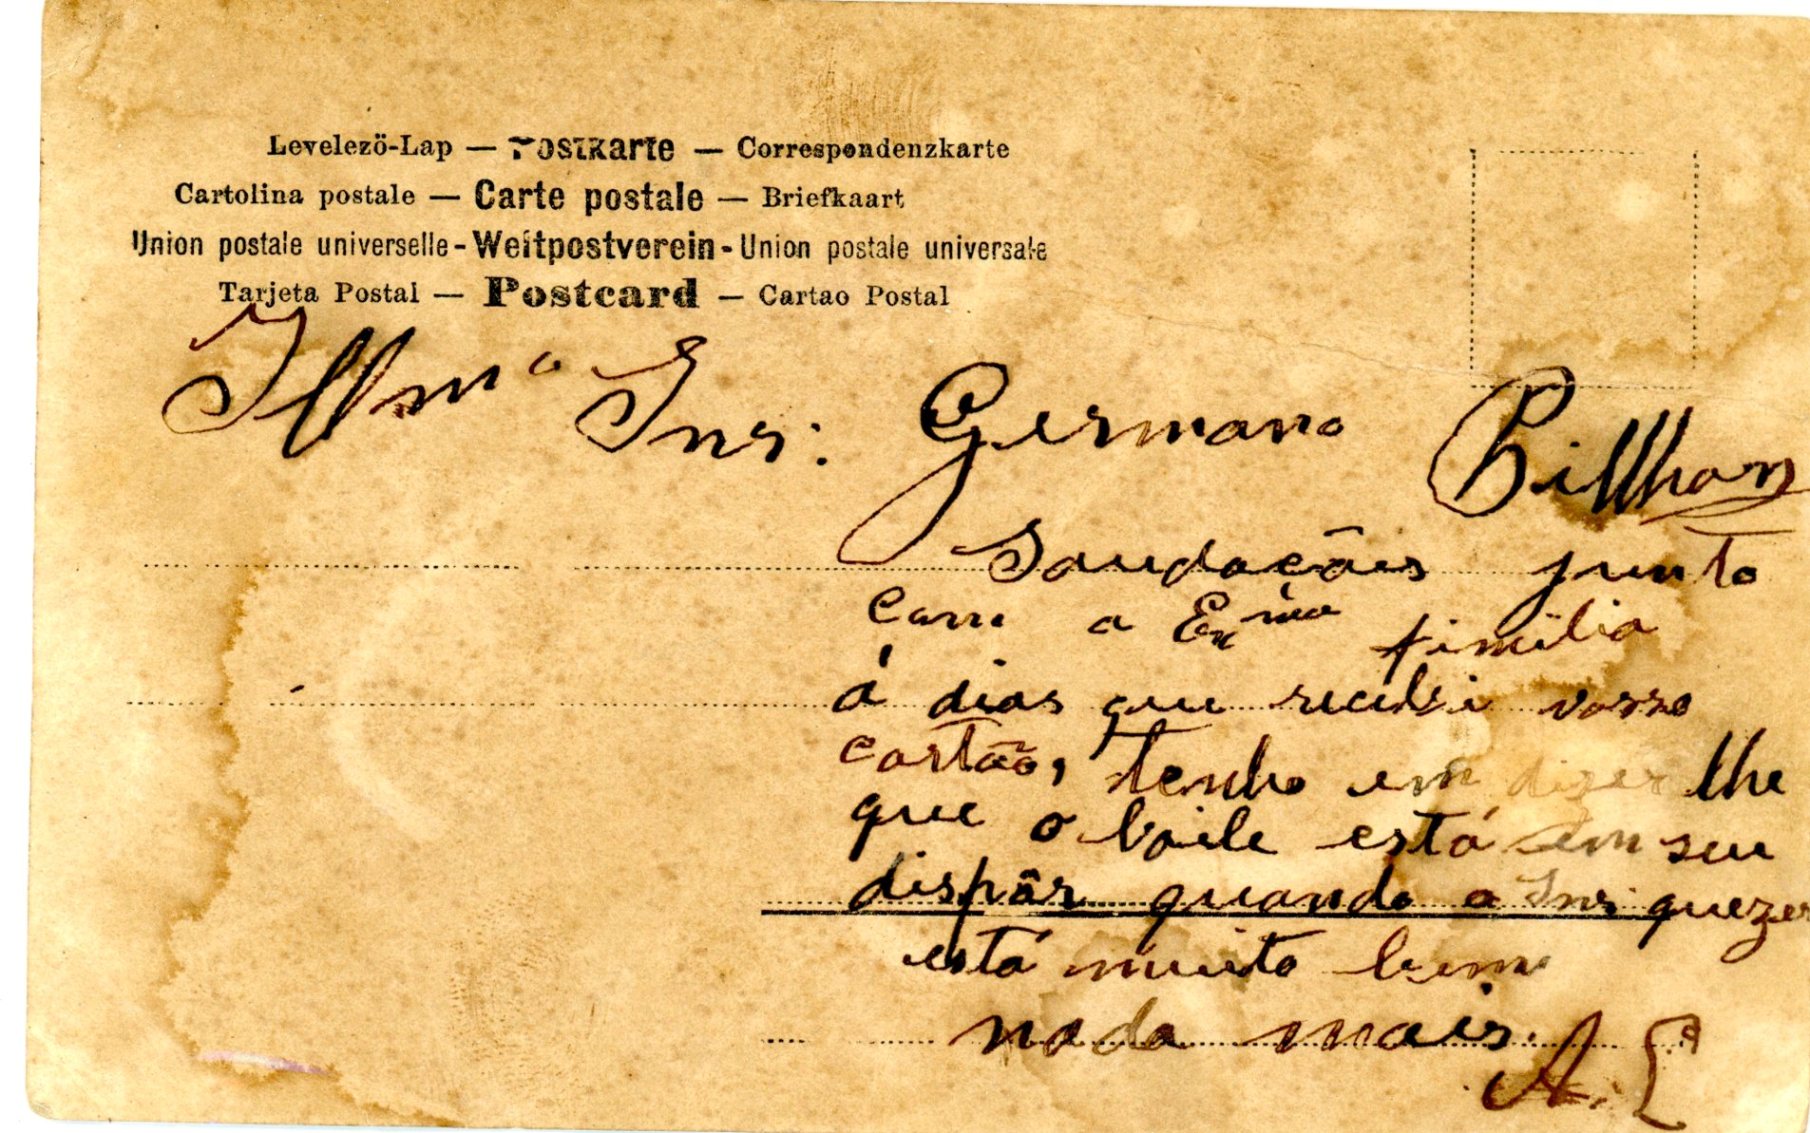 Levelezö-Lap — Postkarte — Correspondenzkarte
Cartolina postale — Carte postale — Briefkaart
Union postale universelle - Weltpostverein - Union postale universale
Tarjeta Postal — Postcard — Cartao Postal
Illmo Snr: Germano Billhan
Saudações junto
com a Exma familia
á dias que recebi vosso
cartão, tenho em dizer lhe
que o baile está em seu
dispôr quando o Snr quezer
está muito bem
nada mais.
A. L